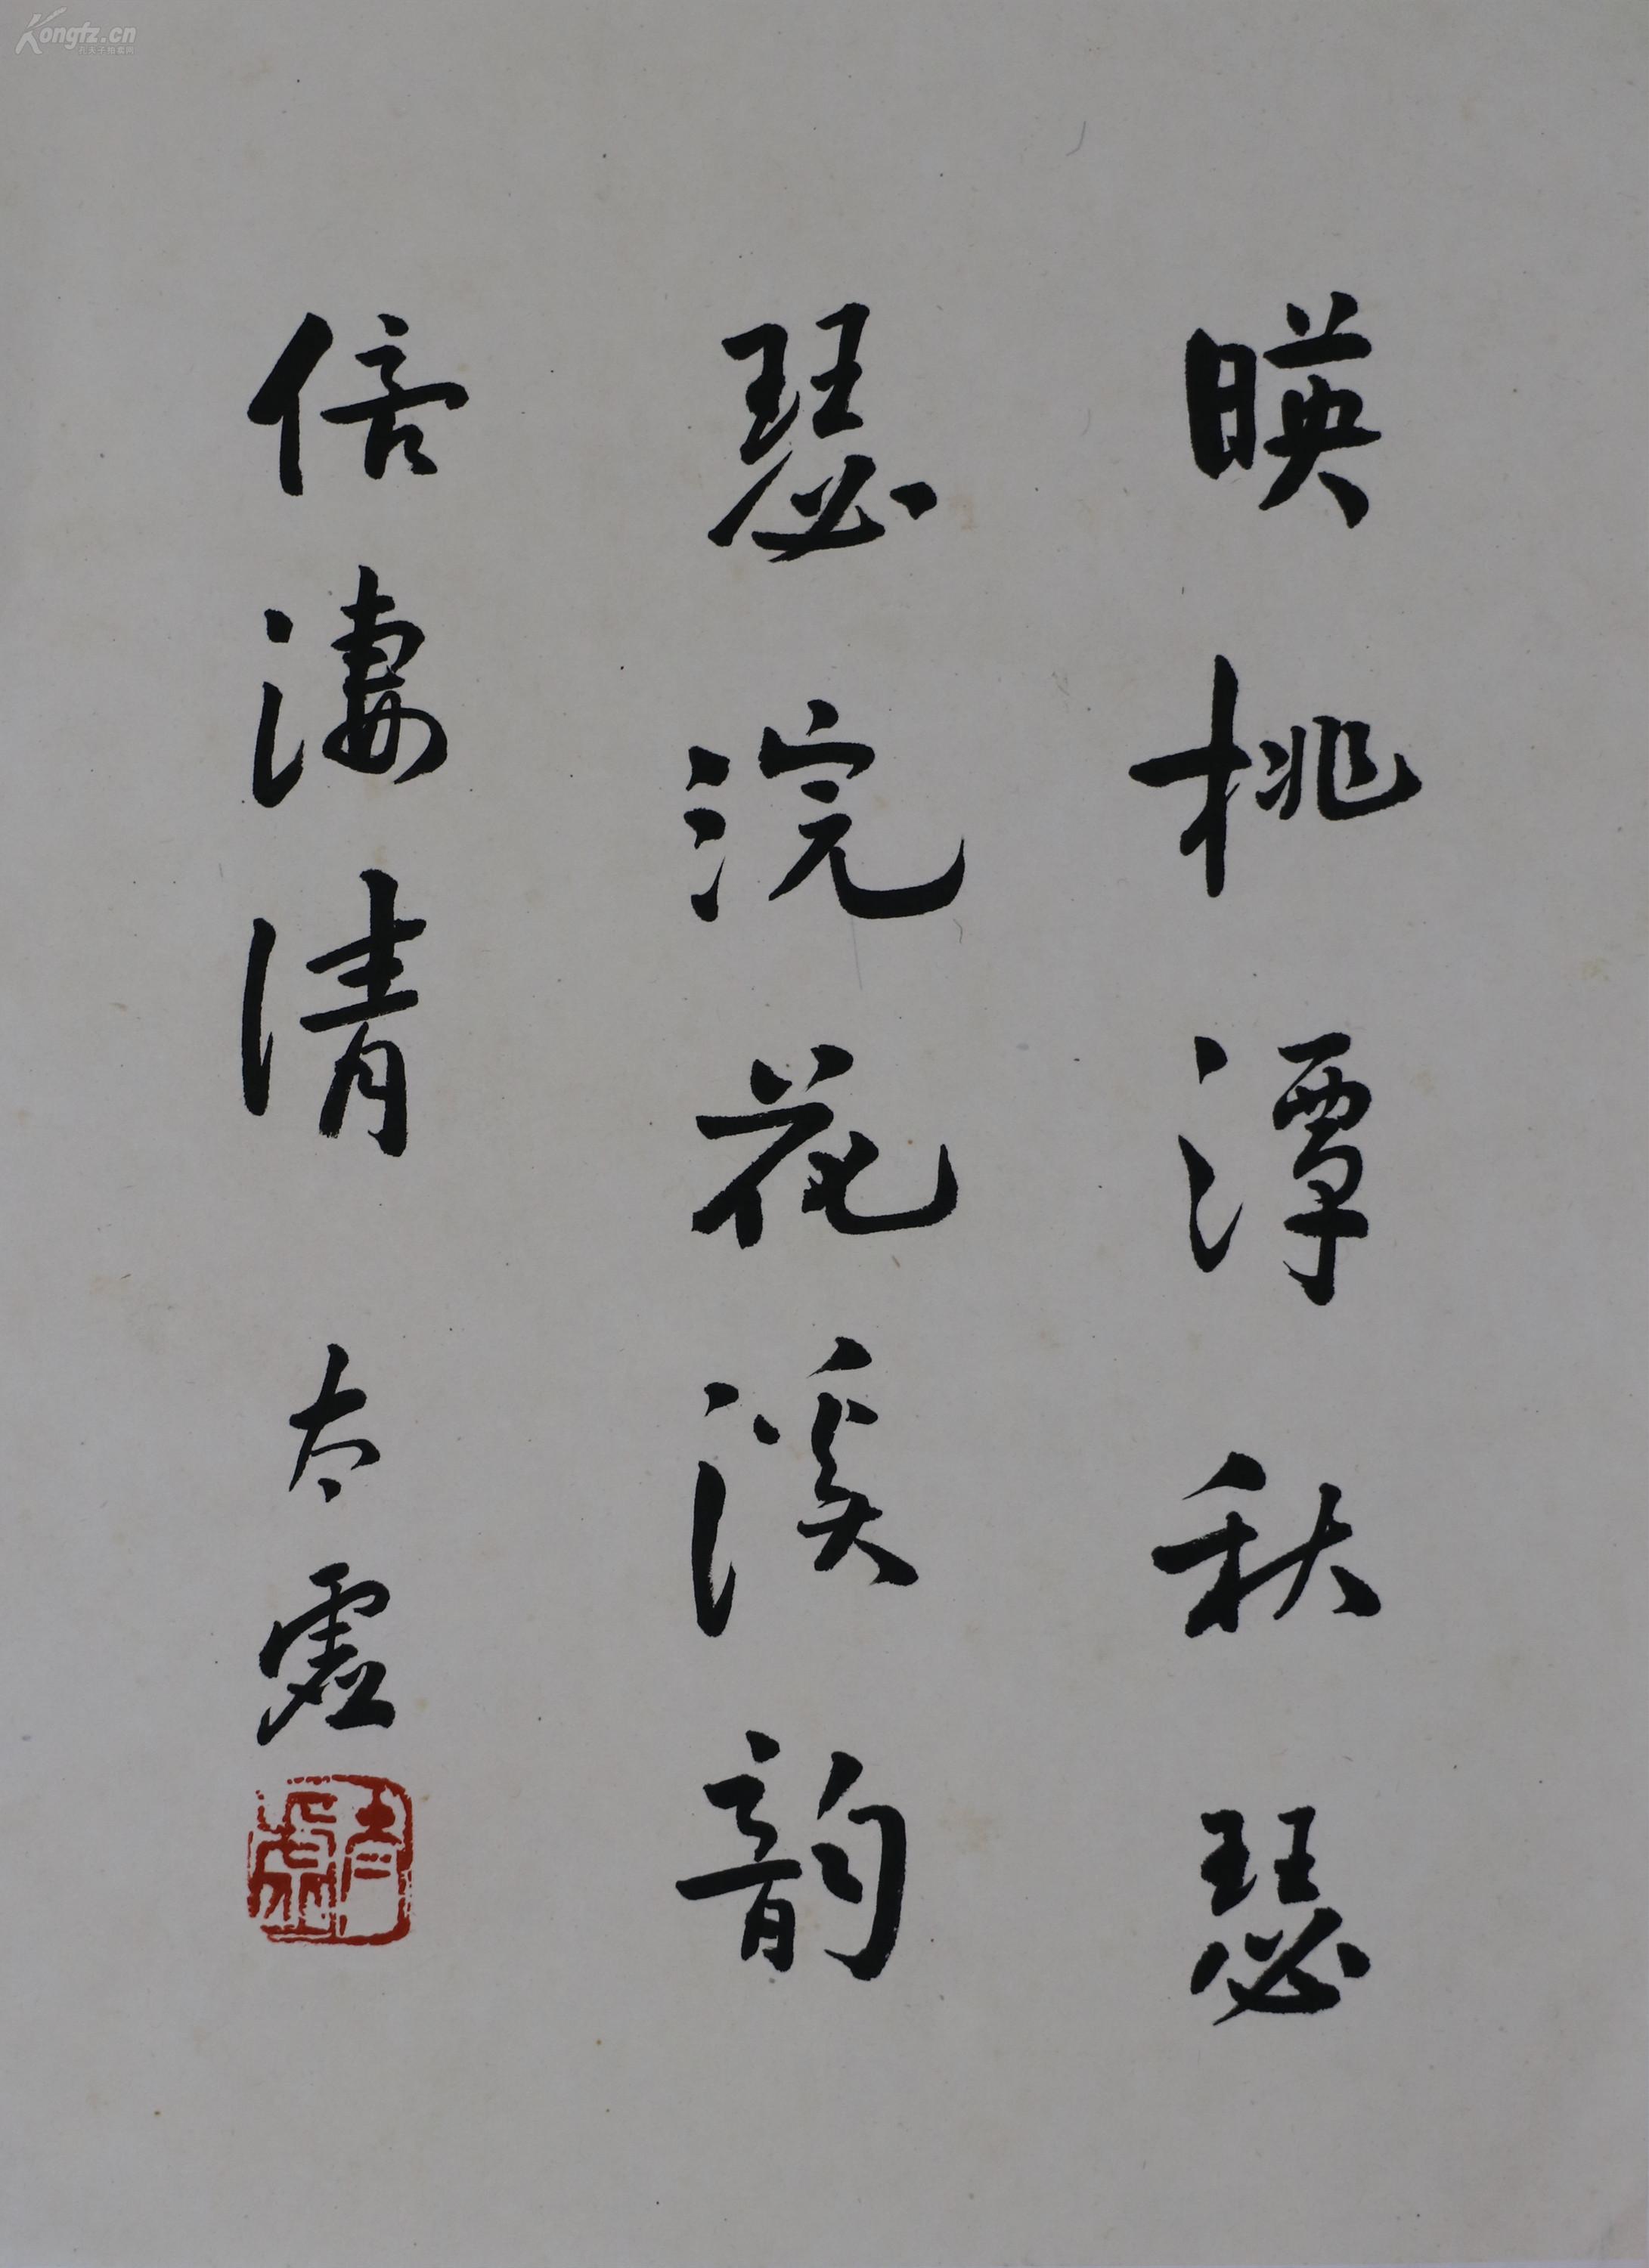 暎桃潭秋瑟
瑟浣花溪韵
倍淒清 太虛
Kongfz.cn
孔夫子拍卖网